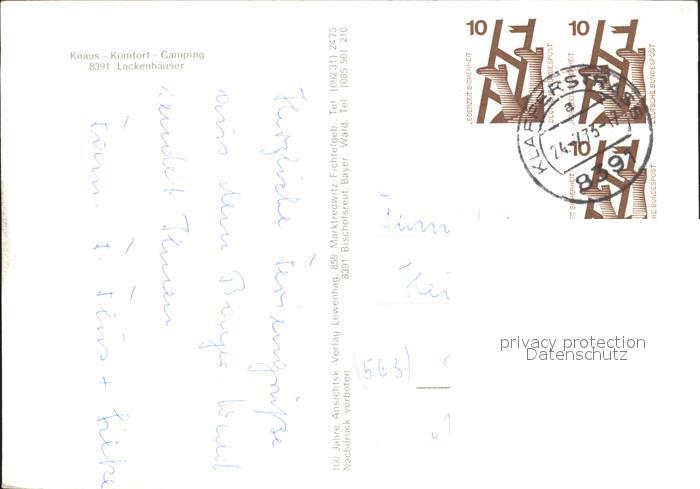 Knaus - Komfort - Camping
8391 Lackenhäuser
Herzliche Feriengrüße
aus dem Bayer Wald
sendet Ihnen
Fam.
100 Jahre Ansichtsk.-Verlag Löwenhag, 859 Marktredwitz/Fichtelgeb. Tel. (092 31) 24 75
8391 Bischofsreut/Bayer. Wald, Tel. (085 50) 210
Nachdruck verboten
10
JEDERZEIT SICHERHEIT
DEUTSCHE BUNDESPOST
10
DEUTSCHE BUNDESPOST
10
DEUTSCHE BUNDESPOST
KLAFFERSTRASS
a
24.
8391
Fam
(563)
privacy protection
Datenschutz